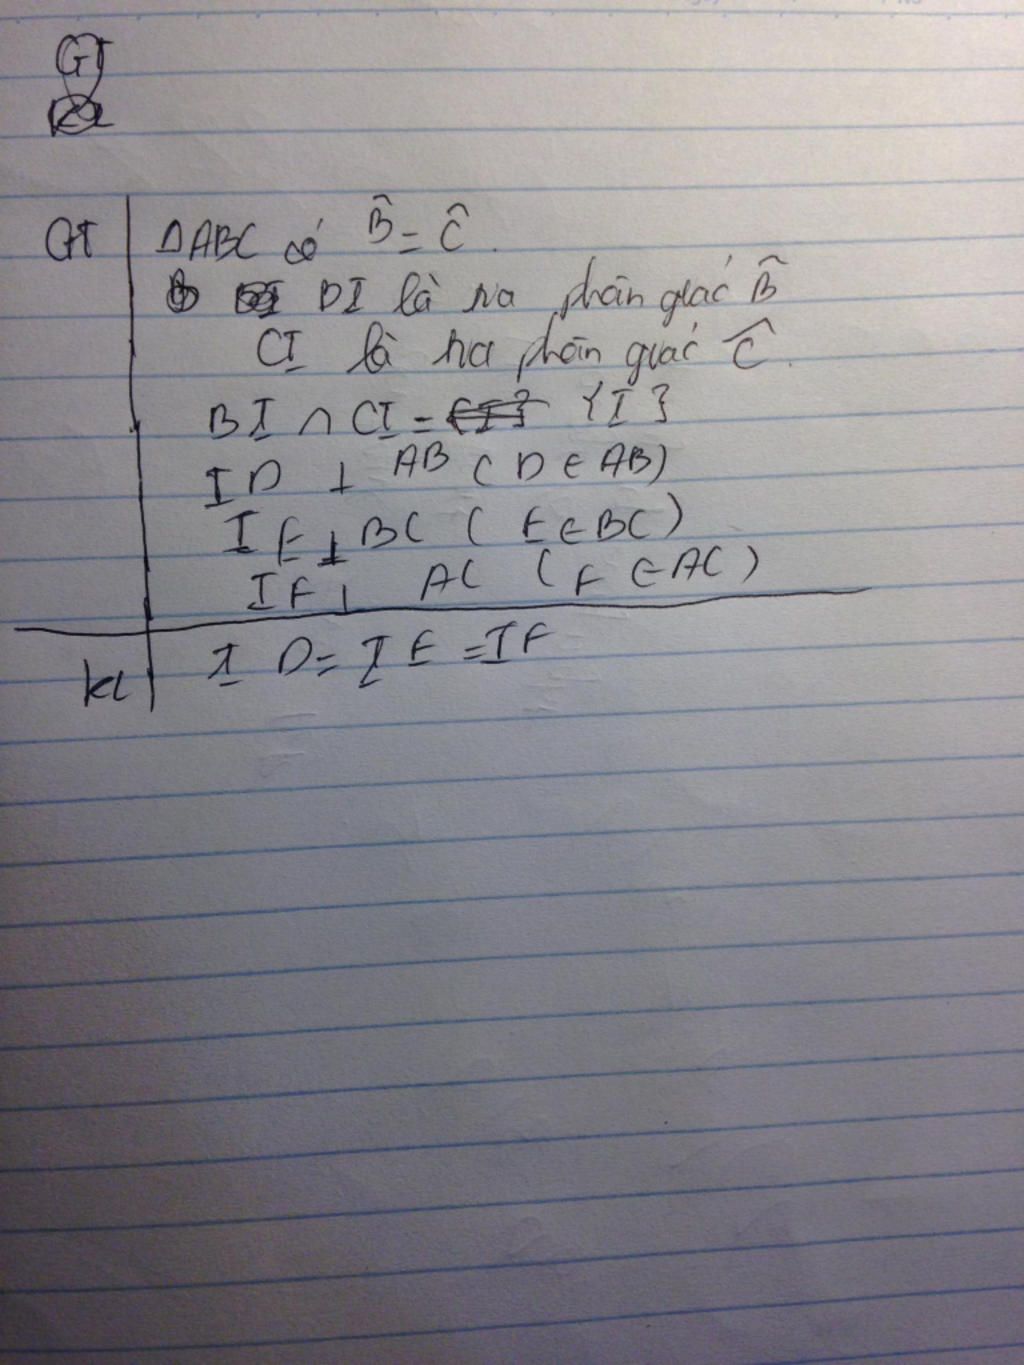 GT
GT ΔABC có B̂ = Ĉ.
DI là tia phân giác B̂
CI là tia phân giác Ĉ.
BI ∩ CI = {I}
ID ⊥ AB (D ∈ AB)
IE ⊥ BC (E ∈ BC)
IF ⊥ AC (F ∈ AC)
KL ID = IE = IF